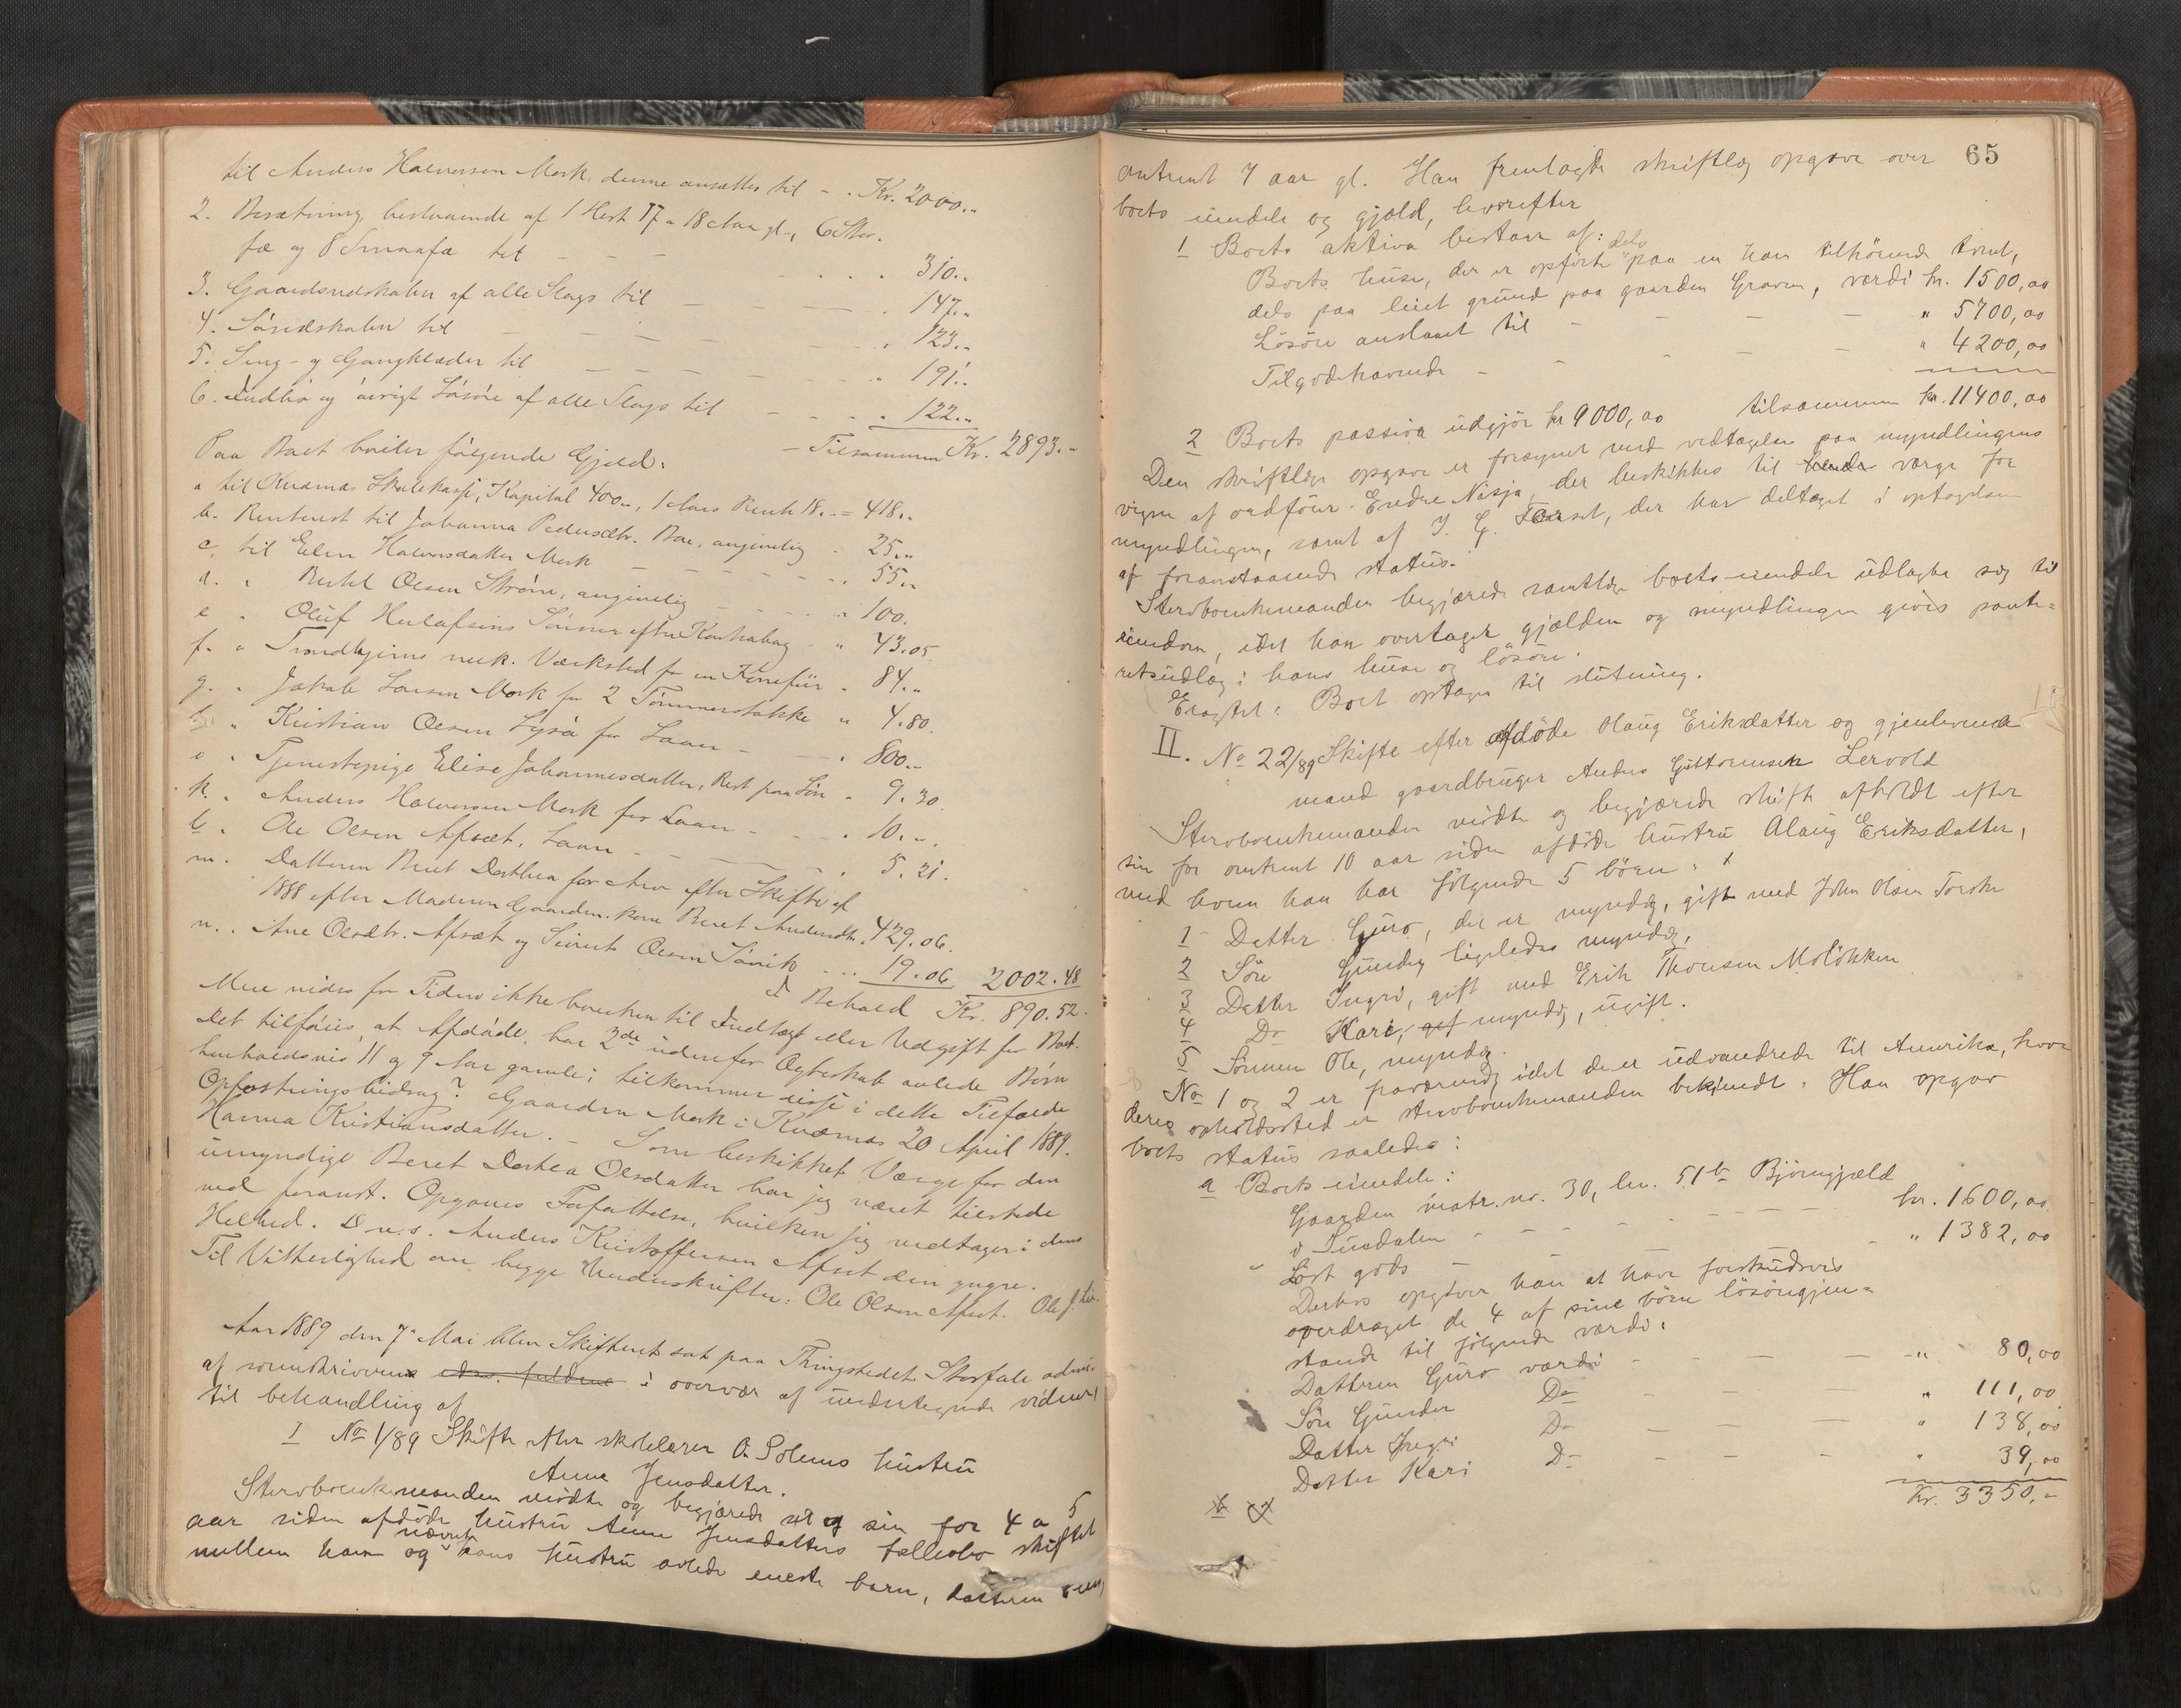 til Anders Halvorsen Mork, denne ansættes til - . Kr. 2000..
2. Besætning, bestaaende af 1 Hest 17 a 18 Aar gl., 6 Stor-
fæ og 8 Smaafæ til - - - 310..
3. Gaardsredskaber af alle Slags til - - . 147..
4. Søredskaber til - - - 123..
5. Seng- og Gangklæder til - - - 191..
6. Indbo og øvrigt Løsøre af alle Slags til - - - 122..
- Tilsammen Kr. 2893.-
Paa Boet hviler følgende Gjæld:
a til Kvernæs Skolekasse, Kapital 400.., 1 Aars Rente 18.. = 418..
b. Renterest til Johanna Pedersdtr. Bøe, angivelig - 25..
c. til Elen Halvorsdatter Mork - - - 55..
d. " Bertel Olsen Strøm, angivelig - - - 100.
e " Oluf Herlafsens Sønner efter Kontrabog - " 43.05.
f. " Trondhjems mek. Værksted for en Komfür " 84..
g. " Jakob Larsen Mork for 2 Tømmerstokke " 4.80.
h. " Kristian Olsen Lysø for Laan - - 800.-
i " Tjenestepige Elise Johannesdatter, Rest paa Løn - 9.30.
k. " Anders Halvorsen Mork for Laan - - - 10.-.
l. " Ole Olsen Afsæt, Laan - - - 5.21.
m. Datteren Beret Dorthea for Arv efter Skifte af
1888 efter Moderen Gaardm. kone Beret Andersdtr. 429.06.
n. . Ane Olsdtr. Afsæt og Sivert Olsen Sørvik - .. 19.06 2002.48
I Behold Kr. 890.52.
Mere vides for Tiden ikke hverken til Indtægt eller Udgift for Boet.
Det tilføies, at Afdøde har 2de udenfor Ægteskab avlede Børn
henholdsvis 11 og 9 Aar gamle; tilkommer disse i dette Tilfælde
Opfostringsbidrag? Gaarden Mork i Kvernæs 20 April 1889.
Hanna Kristiansdatter. - Som beskikket Værge for den
umyndige Beret Dorthea Olsdatter har jeg været tilstede
ved foranst. Opgaves Forfattelse, hvilken jeg vedtager i dens
Helhed. D.u.s. Anders Kristoffersen Afset den yngre.
Til Vitterlighed om begge Underskrifter: Ole Olsen Afset. Ole J.
Aar 1889 den 7. Mai blev Skifteret sat paa Thingstedet Storfale
af sorenskriveren edsv. fuldm. i overvær af undertegnede vidner
til behandling af
I No 1/89 Skifte efter skolelærer O. Solems hustru
Anne Jensdatter.
Stervboenkemanden mødte og begjærede sit og sin for 4 a 5
aar siden afdøde hustru Anne Jensdatters fællesbo skiftet
mellem ham og nævnte hans hustru avlede eneste barn, datteren
65
omtrent 7 aar gl. Han fremlagde skriftlig opgave over
boets eiendele og gjæld, hvorefter
1 Boets aktiva bestaar af:
Boets huse, der er opførte dels paa en ham tilhørende tomt,
dels paa leiet grund paa gaarden Graven, værdi kr. 1500,00
Løsøre anslaaet til - - - " 5700,00
Tilgodehavende - - - " 4200,00
tilsammen kr. 11400,00
2 Boets passiva udgjør kr 9000,00
Den skriftlige opgave er forsynet med vedtagelse paa myndlingens
vegne af ordfører Endre Nisja, der beskikkes til værge for
myndlingen, samt af J. G. Torset, der har deltaget i optagelsen
af foranstaaende status.
Stervboenkemanden begjærede samtlige boets eiendele udlagte sig til
eiendom, idet han overtager gjælden og myndlingen gives pante-
retsudlæg i hans huse og løsøre.
Eragtet: Boet optages til slutning.
II. No 22/89 Skifte efter afdøde Olaug Eriksdatter og gjenlevende
mand gaardbruger Anders Guttormsen Lervold
Stervboenkemanden mødte og begjærede skifte afholdt efter
sin for omtrent 10 aar siden afdøde hustru Olaug Eriksdatter,
med hvem han har følgende 5 børn:
1 Datter Guro, der er myndig, gift med John Olsen Torske
2 Søn Gunder ligeledes myndig,
3 Datter Ingri, gift med Erik Thoresen Moløkken
4 Do Kari, gif myndig, ugift.
5 Sønnen Ole, myndig.
No 1 og 2 er fraværende idet de er udvandrede til Amerika, hvor
deres opholdssted er stervboenkemanden bekjendt. Han opgav
boets status saaledes:
a Boets eiendele:
Gaarden matr. no. 30, lnr. 51b Bjørngjæld
i Sundalen - - - kr. 1600,00
Løst gods - - - " 1382,00
Derhos opgiver han at have forskudsvis
overdraget de 4 af sine børn løsøregjen-
stande til følgende værdi:
Datteren Guro værdi - - - " 80,00
Søn Gunder Do - - " 111,00
Datter Ingri Do - - " 138,00
Datter Kari Do - - " 39,00
Kr. 3350,-
b